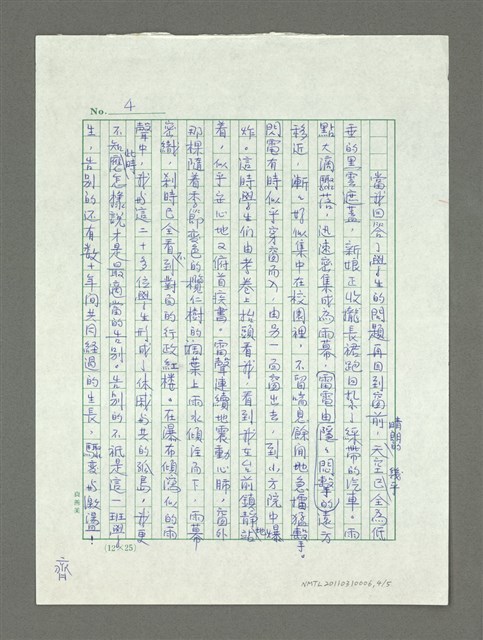 No. 4
當我回答了學生的問題再回到窗前,晴朗的天空已幾乎全為低
垂的黑雲遮蓋,新娘正收攏長裙跑回紮了綵帶的汽車。雨
點大滴驟落,迅速密集成為雨幕,雷電由隱隱悶擊的遠方
移近,漸漸好似集中在校園裡,不留喘息餘間地急擂猛擊。
閃電有時似乎穿窗而入,由另一面窗出去,到小方院中爆
炸。這時學生們由考卷上抬頭看我,看到我在台前鎮靜地站
着,似乎安心地又俯首疾書。雷聲連續地震動心肺,窗外
那棵隨着季節變色的欖仁樹的闊葉上雨水傾注而下,雨幕
密織,剎時已全看不到對面的行政紅樓。在瀑布傾瀉似的雨
聲中,我與這二十多位學生形成了休戚與共的孤島,我更
不知此時應怎樣說才是最適當的告別。告別的不祇是這一班學
生,告別的還有數十年間共同經過的生長,驟變與激盪!
(12×25)
齊
NMTL20110310006,4/5